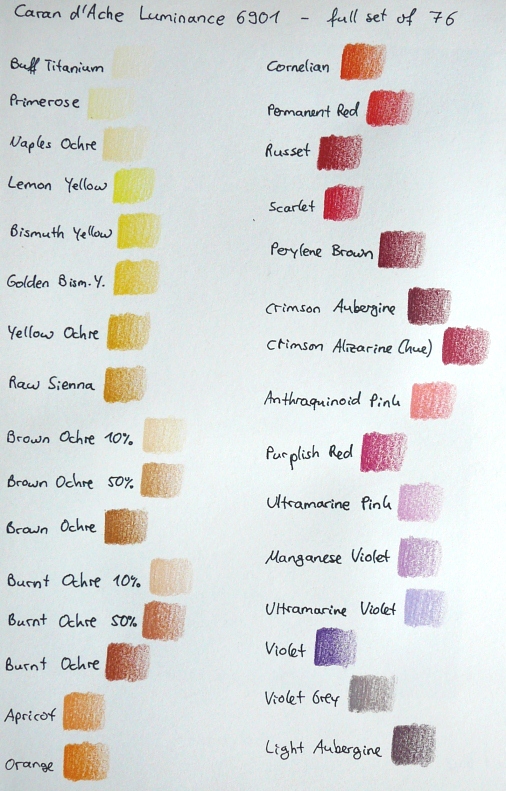 Caran d'Ache Luminance 6901 - full set of 76
Buff Titanium
Primerose
Naples Ochre
Lemon Yellow
Bismuth Yellow
Golden Bism.Y.
Yellow Ochre
Raw Sienna
Brown Ochre 10%
Brown Ochre 50%
Brown Ochre
Burnt Ochre 10%
Burnt Ochre 50%
Burnt Ochre
Apricot
Orange
Cornelian
Permanent Red
Russet
Scarlet
Perylene Brown
Crimson Aubergine
Crimson Alizarine (hue)
Anthraquinoid Pink
Purplish Red
Ultramarine Pink
Manganese Violet
Ultramarine Violet
Violet
Violet Grey
Light Aubergine